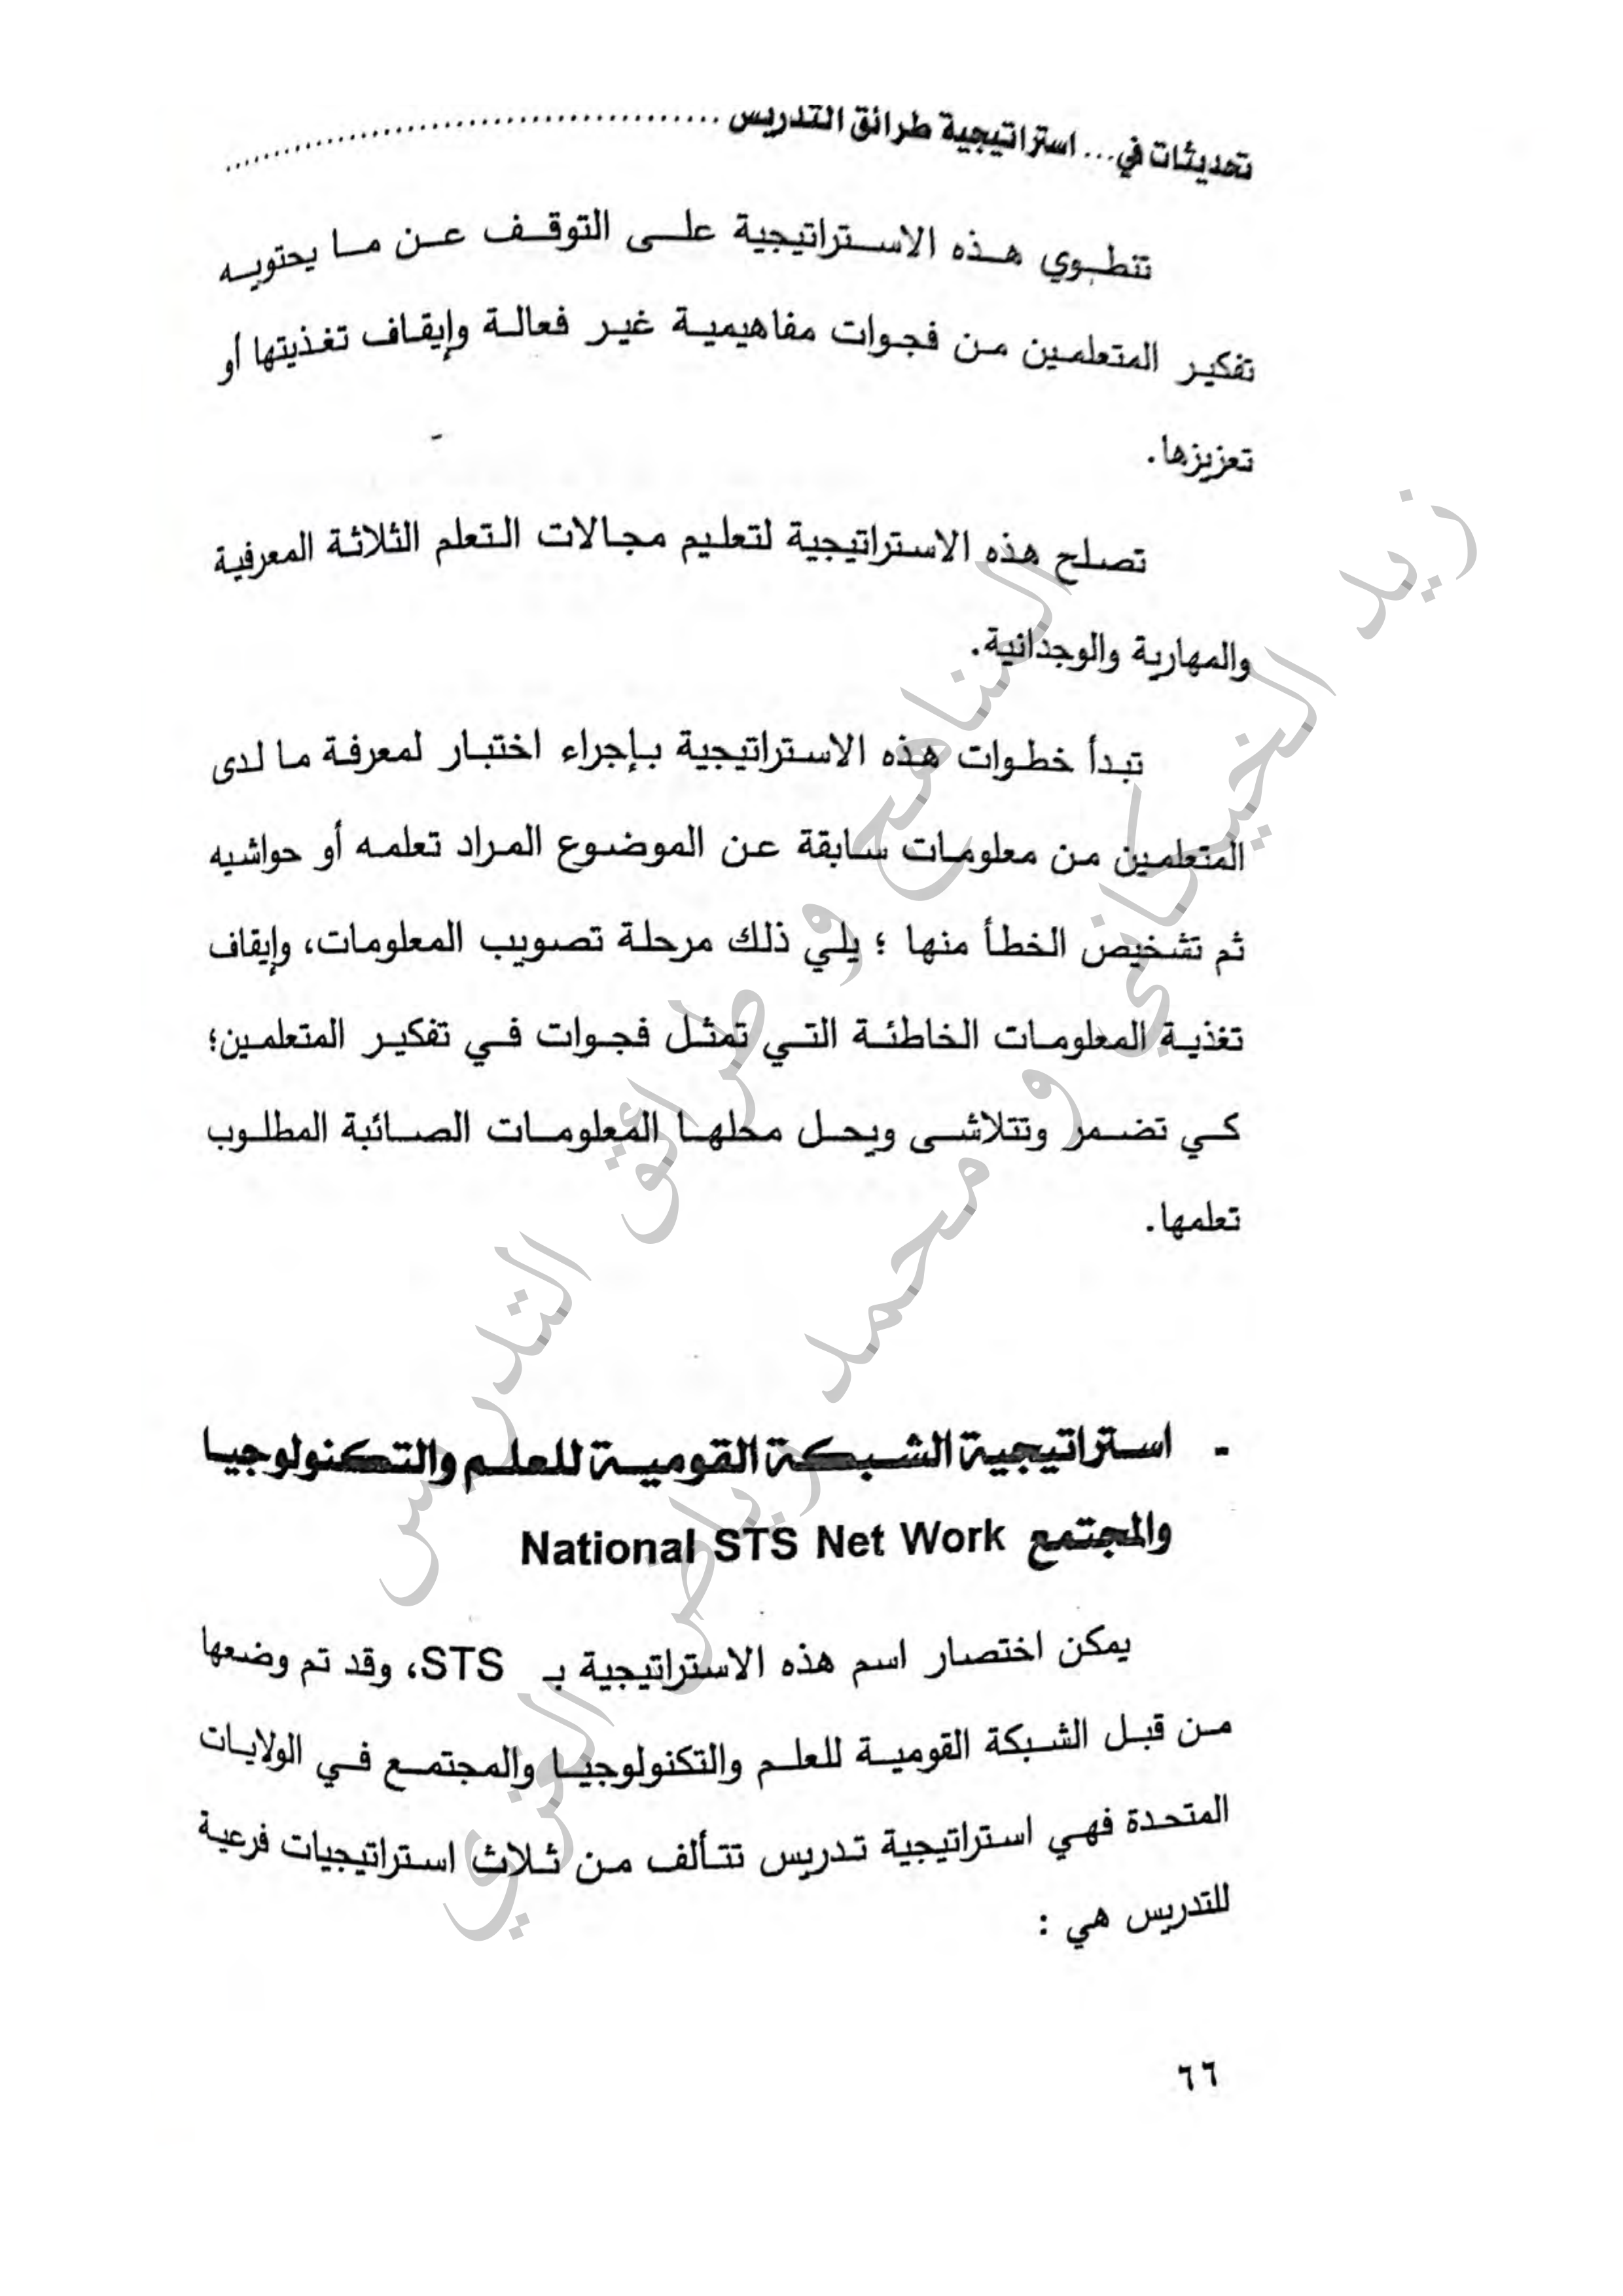 تحديثات في... استراتيجية طرائق التدريس ............................................
تنطوي هذه الاستراتيجية على التوقف عن ما يحتويه
تفكير المتعلمين من فجوات مفاهيمية غير فعالة وإيقاف تغذيتها أو
تعزيزها.
تصلح هذه الاستراتيجية لتعليم مجالات التعلم الثلاثة المعرفية
والمهارية والوجدانية.
تبدأ خطوات هذه الاستراتيجية بإجراء اختبار لمعرفة ما لدى
المتعلمين من معلومات سابقة عن الموضوع المراد تعلمه أو حواشيه
ثم تشخيص الخطأ منها ؛ يلي ذلك مرحلة تصويب المعلومات، وإيقاف
تغذية المعلومات الخاطئة التي تمثل فجوات في تفكير المتعلمين؛
كي تضمر وتتلاشى ويحل محلها المعلومات الصائبة المطلوب
تعلمها.
- استراتيجية الشبكة القومية للعلم والتكنولوجيا
والمجتمع National STS Net Work
يمكن اختصار اسم هذه الاستراتيجية بـ STS، وقد تم وضعها
من قبل الشبكة القومية للعلم والتكنولوجيا والمجتمع في الولايات
المتحدة فهي استراتيجية تدريس تتألف من ثلاث استراتيجيات فرعية
للتدريس هي :
٦٦
المناهج و طرائق التدرس
زيد الخيكاني و محمد رياض الغزي